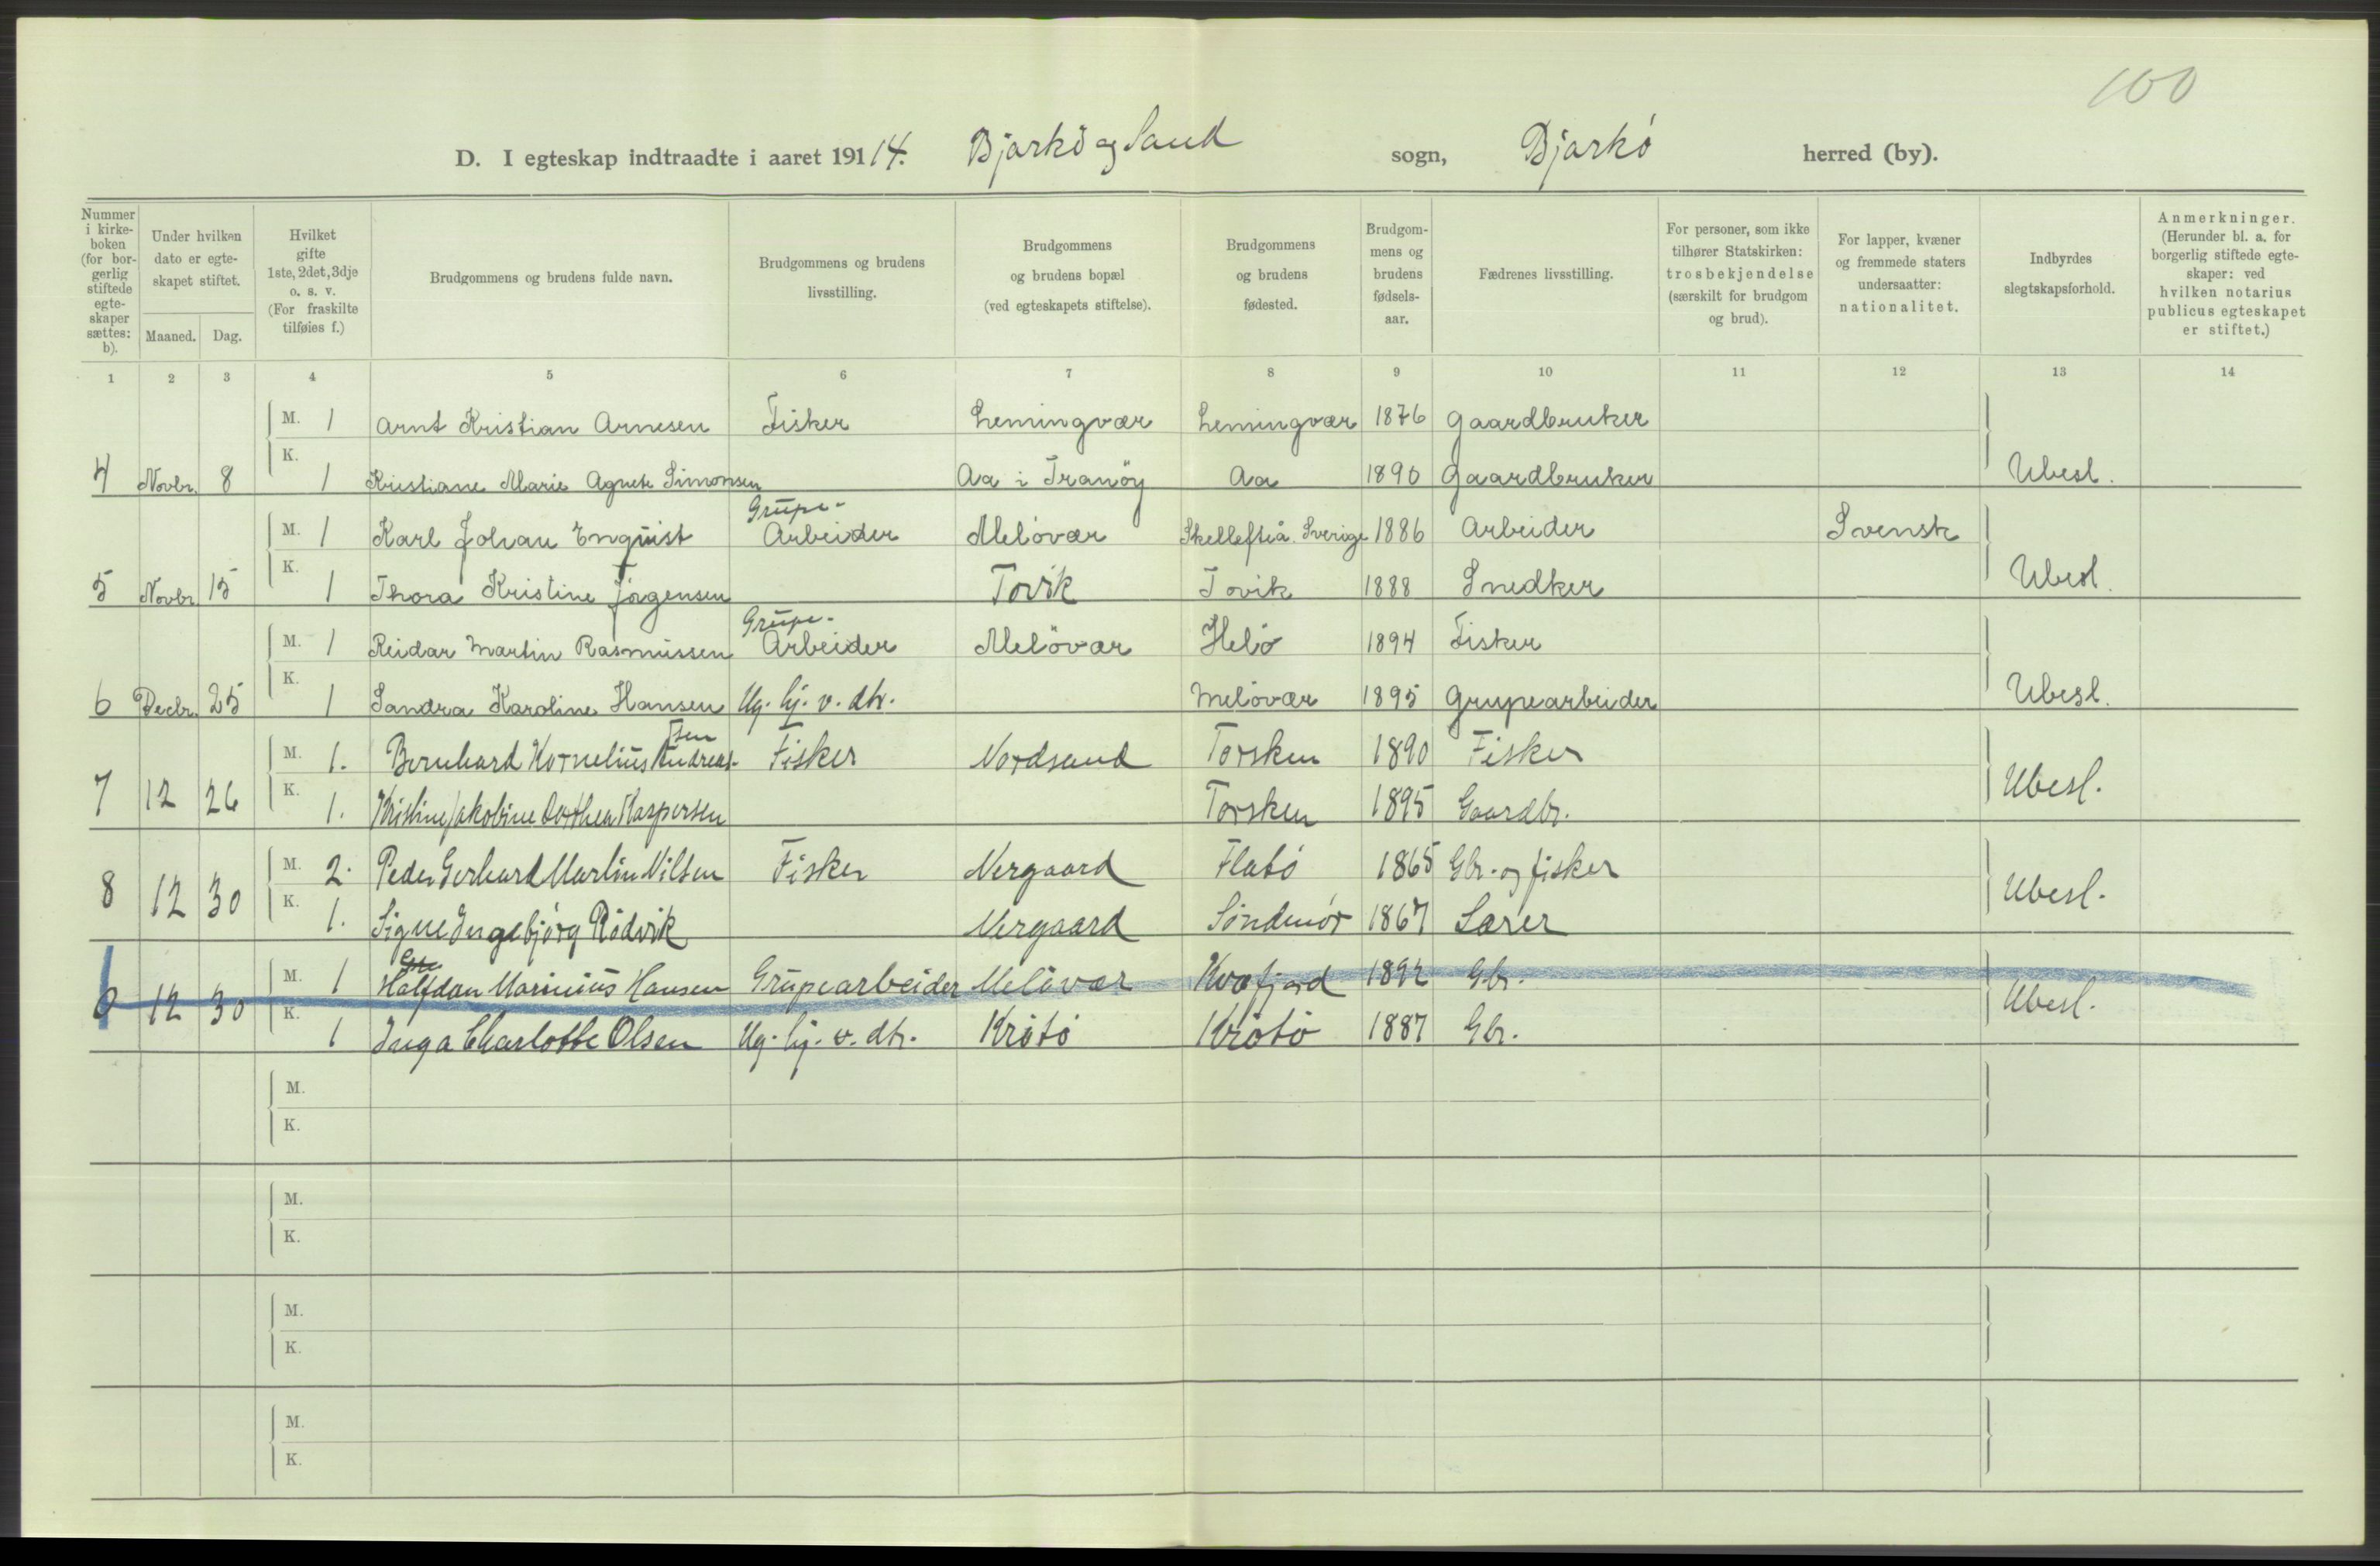 100
D. I egteskap indtraadte i aaret 19114. Bjarkö og Sand sogn, Bjarkö herred (by).
Nummer i kirke-boken (for bor-gerlig stiftede egte-skaper sættes: b).
Under hvilken dato er egte-skapet stiftet.
Maaned. Dag.
Hvilket gifte 1ste, 2det, 3dje o. s. v. (For fraskilte tilføies f.)
Brudgommens og brudens fulde navn.
Brudgommens og brudens livsstilling.
Brudgommens og brudens bopæl (ved egteskapets stiftelse).
Brudgommens og brudens fødested.
Brudgom-mens og brudens fødsels-aar.
Fædrenes livsstilling.
For personer, som ikke tilhører Statskirken: trosbekjendelse (særskilt for brudgom og brud).
For lapper, kvæner og fremmede staters undersaatter: nationalitet.
Indbyrdes slegtskapsforhold.
Anmerkninger. (Herunder bl. a. for borgerlig stiftede egte-skaper: ved hvilken notarius publicus egteskapet er stiftet.)
1 2 3 4 5 6 7 8 9 10 11 12 13 14
M. 1 Arnt Kristian Arnesen Fisker Lemingvær Lemingvær 1876 Gaardbruker
4 Novbr. 8 K. 1 Kristiane Marie Agnete Simonsen Aa i Tranöy Aa 1890 Gaardbruker Ubesl.
Grupe-
M. 1 Karl Johan Enquist Arbeider Melövær Skellefteå. Sverige 1886 Arbeider Svensk
5 Novbr. 15 K. 1 Thora Kristine Jörgensen Tovik Tovik 1888 Snedker Ubesl.
Grupe-
M. 1 Reidar Martin Rasmussen Arbeider Melövær Helö 1894 Fisker
6 Decbr. 25 K. 1 Sandra Karoline Hansen Ug. hj. v. dtr. Melövær 1895 Grupearbeider Ubesl.
sen
M. 1. Bernhard Kornelius Andreas- Fisker Nordsand Torsken 1890 Fisker
7 12 26 K. 1. Kristine Jakobine Dorthea Kaspersen Torsken 1895 Gaardbr. Ubesl.
M. 2. Peder Gerhard Martin Nilsen Fisker Nergaard Flatö 1865 Gbr. og fisker
8 12 30 K. 1. Signe Ingebjörg Rödvik Nergaard Söndmör 1867 Lærer Ubesl.
M. 1 Halfdan Marinius Hansen Grupearbeider Melövær Kvæfjord 1892 Gbr.
12 30 K. 1 Inga Charlotte Olsen Ug. hj. v. dtr. Krötö Krötö 1887 Gbr. Ubesl.
M.
K.
M.
K.
M.
K.
M.
K.